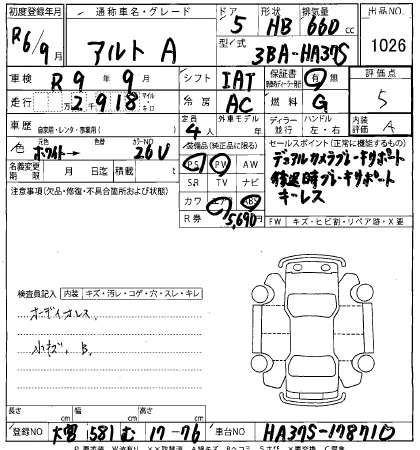 初度登録年月 通称車名・グレード ドア 形状 排気量 出品NO
R6/9月 アルト A 5 HB 660cc 1026
型式 3BA-HA37S
車検 R 9年 9月 シフト IAT 保証書 有 無 評価点
走行 2918 マイル キロ 冷房 AC 燃料 G 5
車歴 自家用・レンタ・事業用( ) 定員 4人 外車モデル ディーラー 並行 ハンドル 左・右 内装 A
色 元色 ホワイト 色替 カラーNO 26U 装備品(純正品に限る) セールスポイント(正常に機能するもの)
名義変更期限 月 日迄 積載 t PS PW AW デュアルカメラブレーキサポート
注意事項(欠品・修復・不具合箇所および状態) SR TV ナビ 後退時ブレーキサポート
カワ エアB ABS キーレス
R券 5,690円 FW キズ・ヒビ割・リペア跡・X要
検査員記入 内装 キズ・汚レ・コゲ・穴・スレ・キレ
ボディオレス
小キズ、B
長さ cm 幅 cm 高さ cm
登録NO 大宮 581 む 17-76 車台NO HA37S-178710